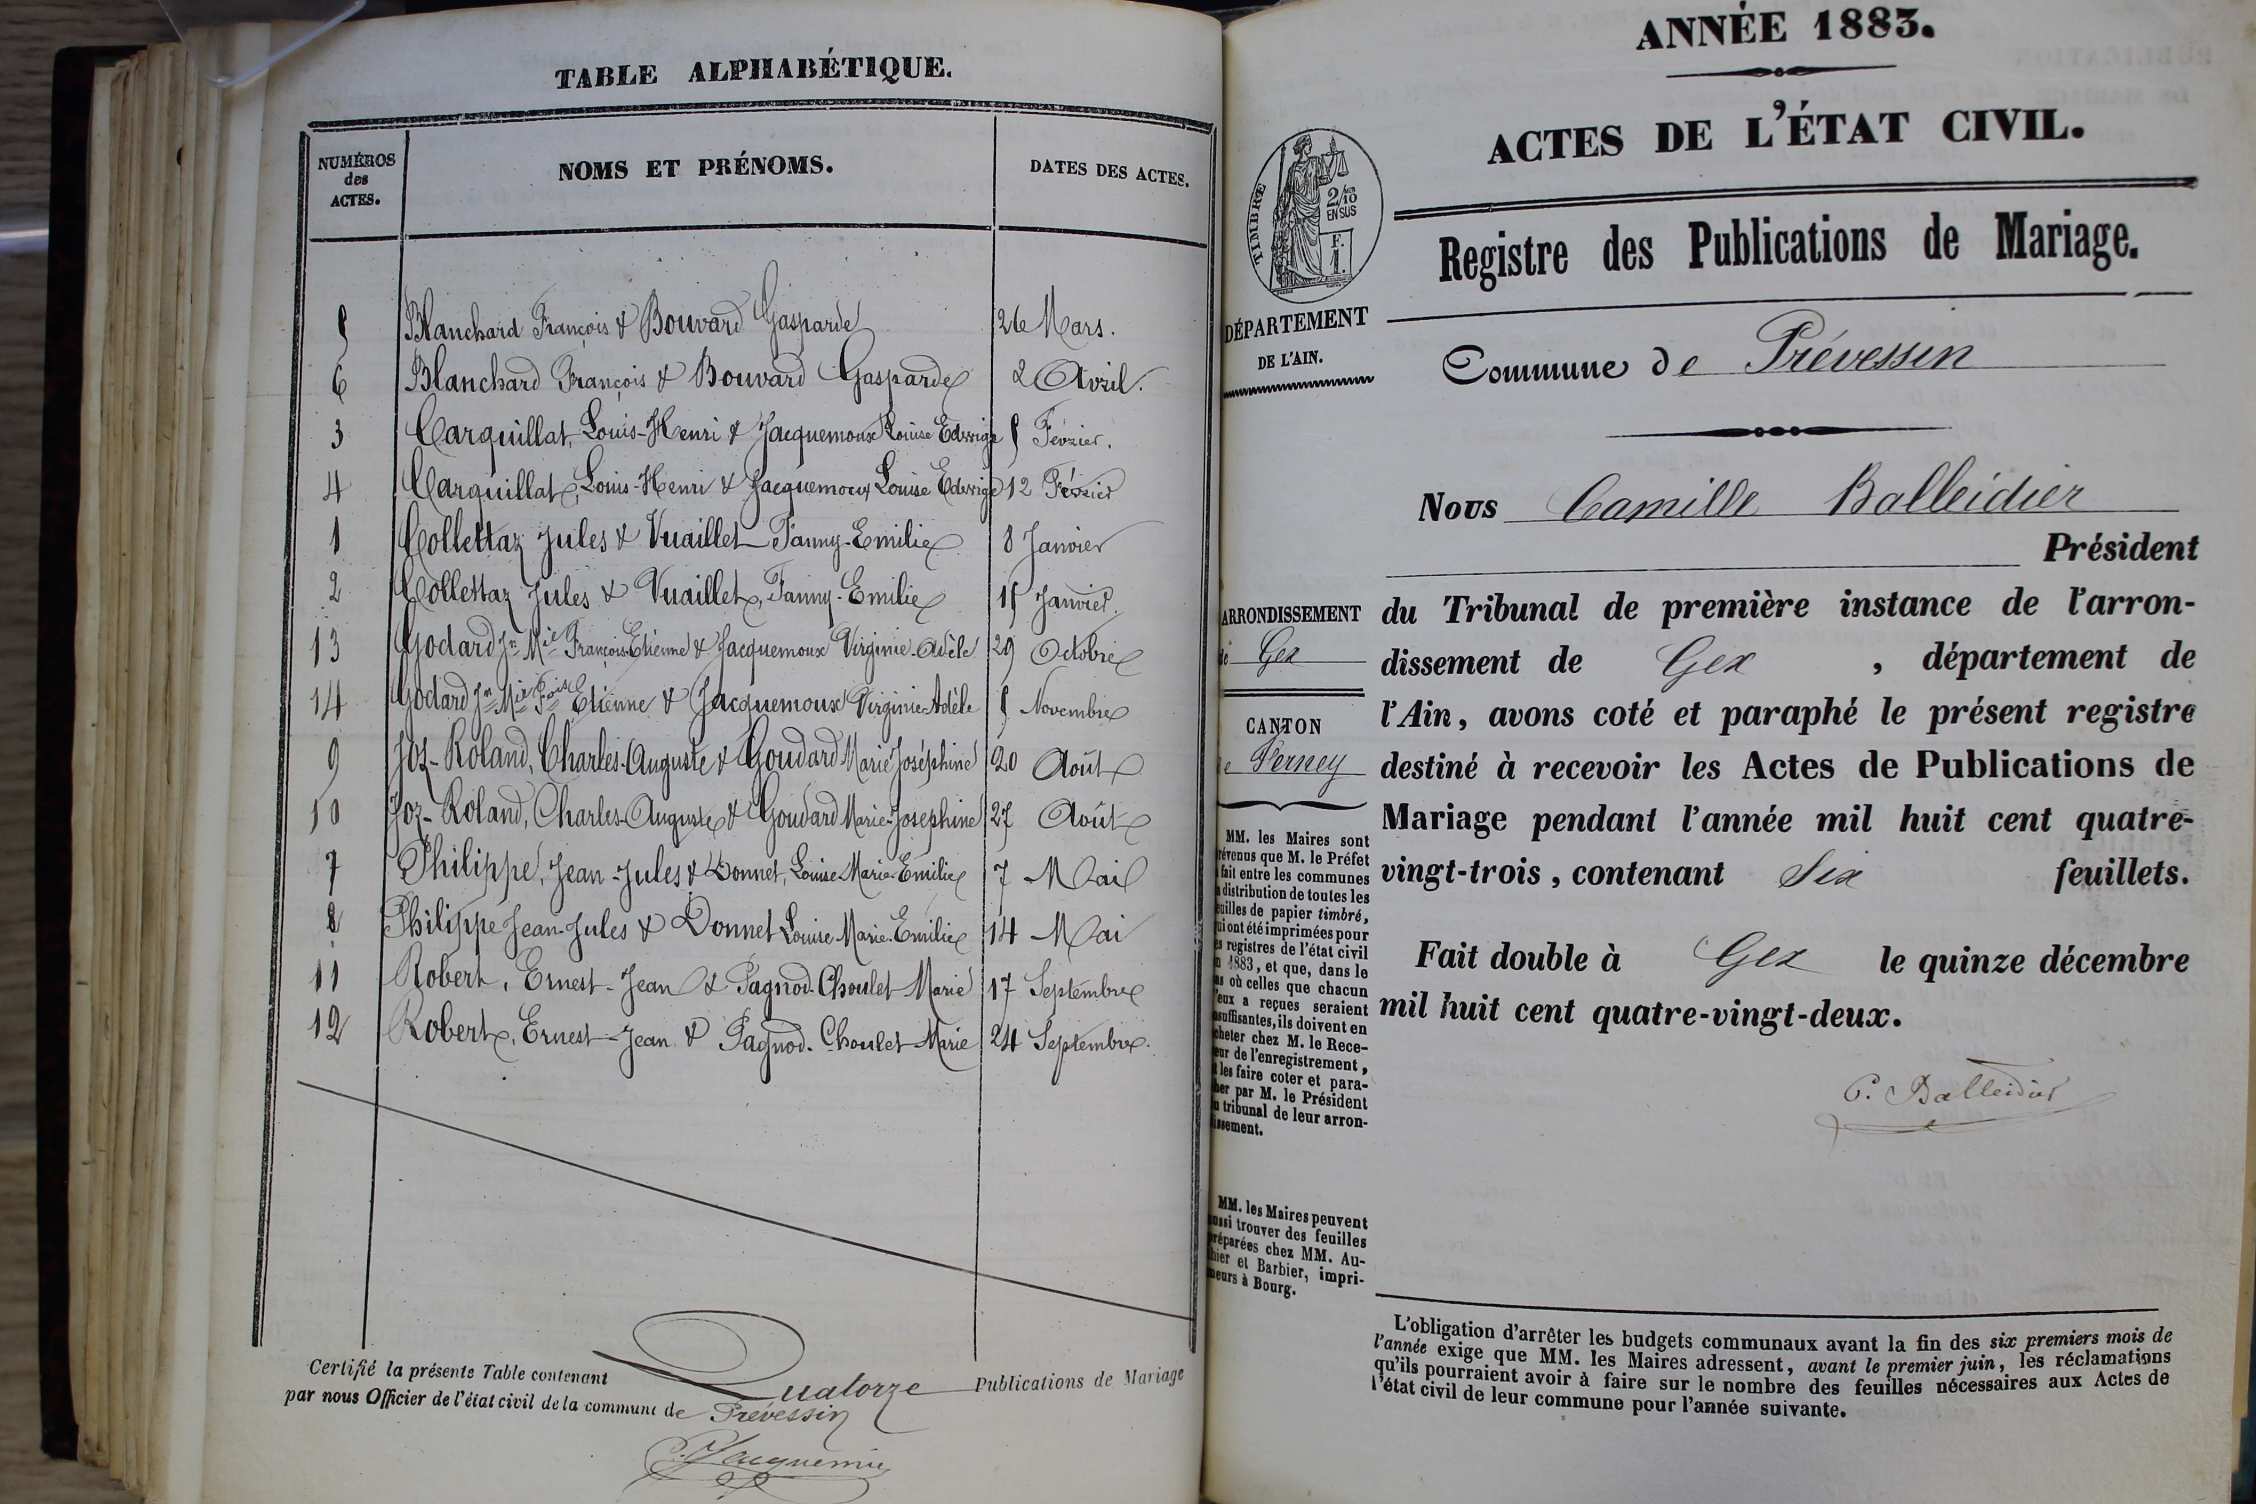 TABLE ALPHABÉTIQUE.
NUMÉROS des ACTES. NOMS ET PRÉNOMS. DATES DES ACTES.
5 Blanchard François & Bouvard Gasparde 26 Mars.
6 Blanchard François & Bouvard Gasparde 2 Avril.
3 Carquillat, Louis-Henri & Jacquemoux Louise Edwige 5 Février.
4 Carquillat, Louis-Henri & Jacquemoux Louise Edwige 12 Février
1 Collettaz Jules & Vuaillet Fanny-Emilie 8 Janvier
2 Collettaz Jules & Vuaillet, Fanny-Emilie 15 Janvier.
13 Godard Jn Mie François-Etienne & Jacquemoux Virginie-Adèle 29 Octobre
14 Godard Jn Mie Fois Etienne & Jacquemoux Virginie-Adèle 5 Novembre
9 Joz-Roland, Charles-Auguste & Goudard Marie Joséphine 20 Août
10 Joz-Roland, Charles-Auguste & Goudard Marie-Joséphine 27 Août
7 Philippe, Jean-Jules & Donnet, Louise-Marie-Emilie 7 Mai
8 Philippe Jean-Jules & Donnet Louise-Marie-Emilie 14 Mai
11 Robert, Ernest-Jean & Pagnod-Choulet Marie 17 Septembre
12 Robert, Ernest-Jean & Pagnod-Choulet Marie 24 Septembre.
Certifié la présente Table contenant Quatorze Publications de Mariage
par nous Officier de l'état civil de la commune de Prévessin
ANNÉE 1883.
ACTES DE L'ÉTAT CIVIL.
TIMBRE
2/10
EN SUS
F.
1.
Registre des Publications de Mariage.
DÉPARTEMENT
DE L'AIN.
Commune de Prévessin
Nous Camille Balleidier
Président
du Tribunal de première instance de l'arron-
dissement de Gex, département de
l'Ain, avons coté et paraphé le présent registre
destiné à recevoir les Actes de Publications de
Mariage pendant l'année mil huit cent quatre-
vingt-trois, contenant Six feuillets.
Fait double à Gex le quinze décembre
mil huit cent quatre-vingt-deux.
C. Balleidier
ARRONDISSEMENT
de Gex
CANTON
de Ferney
MM. les Maires sont
prévenus que M. le Préfet
a fait entre les communes
la distribution de toutes les
feuilles de papier timbré,
qui ont été imprimées pour
les registres de l'état civil
en 1883, et que, dans le
cas où celles que chacun
d'eux a reçues seraient
insuffisantes, ils doivent en
acheter chez M. le Rece-
veur de l'enregistrement,
et les faire coter et para-
pher par M. le Président
du tribunal de leur arron-
dissement.
MM. les Maires peuvent
aussi trouver des feuilles
préparées chez MM. Au-
thier et Barbier, impri-
meurs à Bourg.
L'obligation d'arrêter les budgets communaux avant la fin des six premiers mois de
l'année exige que MM. les Maires adressent, avant le premier juin, les réclamations
qu'ils pourraient avoir à faire sur le nombre des feuilles nécessaires aux Actes de
l'état civil de leur commune pour l'année suivante.